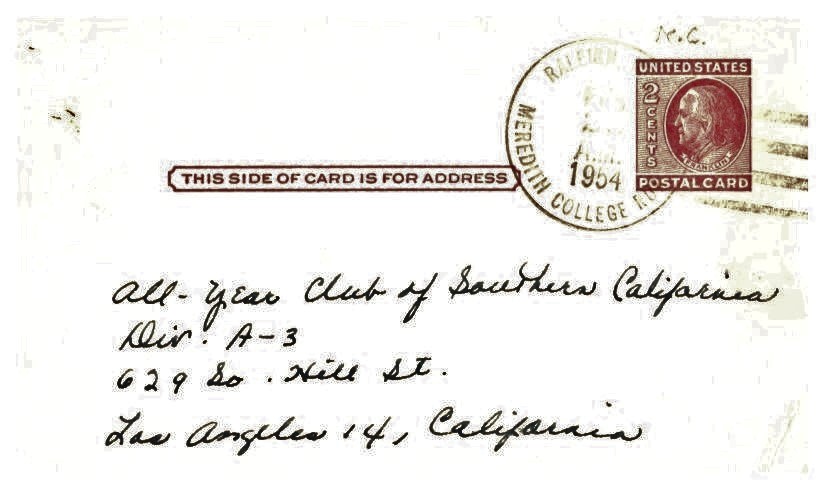 N.C.
UNITED STATES
2 CENTS
FRANKLIN
POSTAL CARD
RALEIGH
MEREDITH COLLEGE
A.M.
1954
THIS SIDE OF CARD IS FOR ADDRESS
All-Year Club of Southern California
Div. A-3
629 So. Hill St.
Los Angeles 14, California